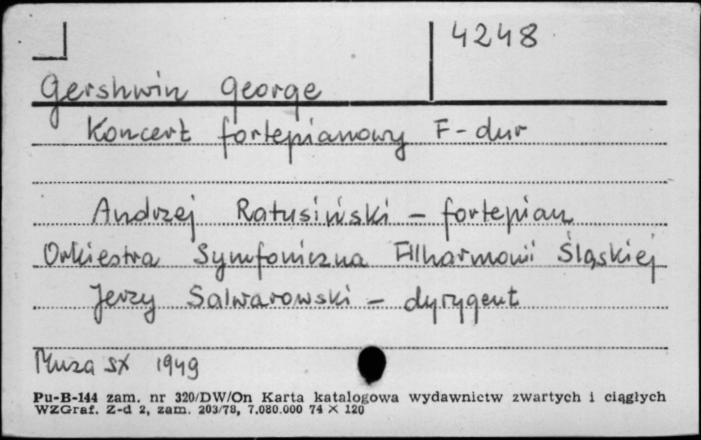 4248
Gershwin George
Koncert fortepianowy F-dur
Andrzej Ratusiński - fortepian
Orkiestra Symfoniczna Filharmonii Śląskiej
Jerzy Salwarowski - dyrygent
Muza SX 1949
Pu-B-144 zam. nr 320/DW/On Karta katalogowa wydawnictw zwartych i ciągłych
WZGraf. Z-d 2, zam. 203/78, 7.080.000 74 × 120